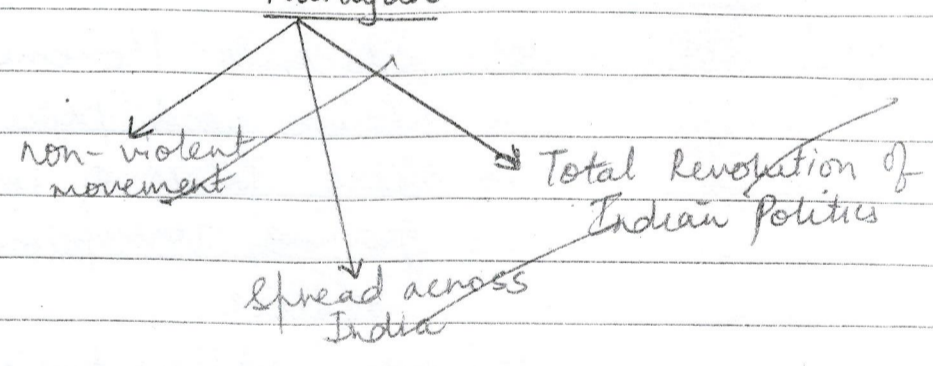 non-violent
movement
Total Revolution of
Indian Politics
Spread across
India